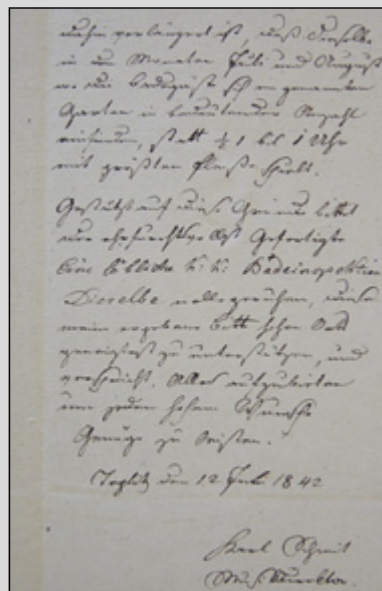 dahin verlängert ist, daß dieselbe
in den Monaten Juli und August
wo die Badegäste sich im genannten
Garten in bedeutender Anzahl
einfinden, statt ½ 1 bis 1 Uhr
mit größten Fleiße spielt.
Gestützt auf diese Gründe bittet
der ehrfurchtsvollst Gefertigte
Eine löbliche k: k: Badeinspektion
Dieselbe wolle geruhen, diese
meine ergebene Bitte
zu unterstützen, und
verspricht, Alles aufzubieten
um jedem hohen Wunsche
Genüge zu leisten.
Teplitz den 12 1842
Karl